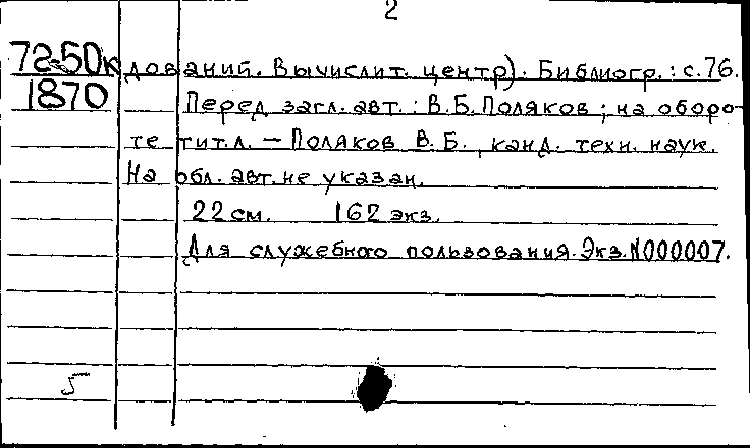 2
72-50к дований. Вычислит. центр). Библиогр.: с.76.
1870 Перед загл. авт.: В.Б.Поляков; на оборо-
те тит.л. – Поляков В.Б., канд. техн. наук.
На обл. авт. не указан.
22 см. 162 экз.
Для служебного пользования. Экз.N000007.
5